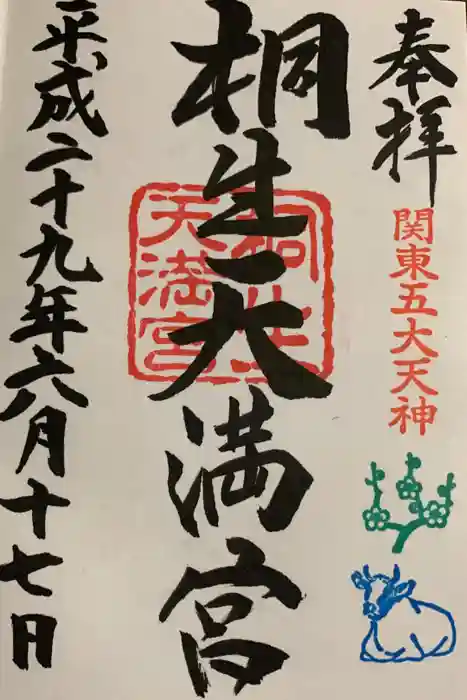 奉拝
関東五大天神
桐生天満宮
桐生
天満宮
平成二十九年六月十七日